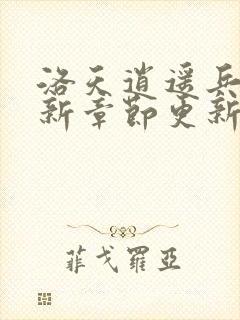 洛天逍遥兵
新章節更新
菲戈羅亞